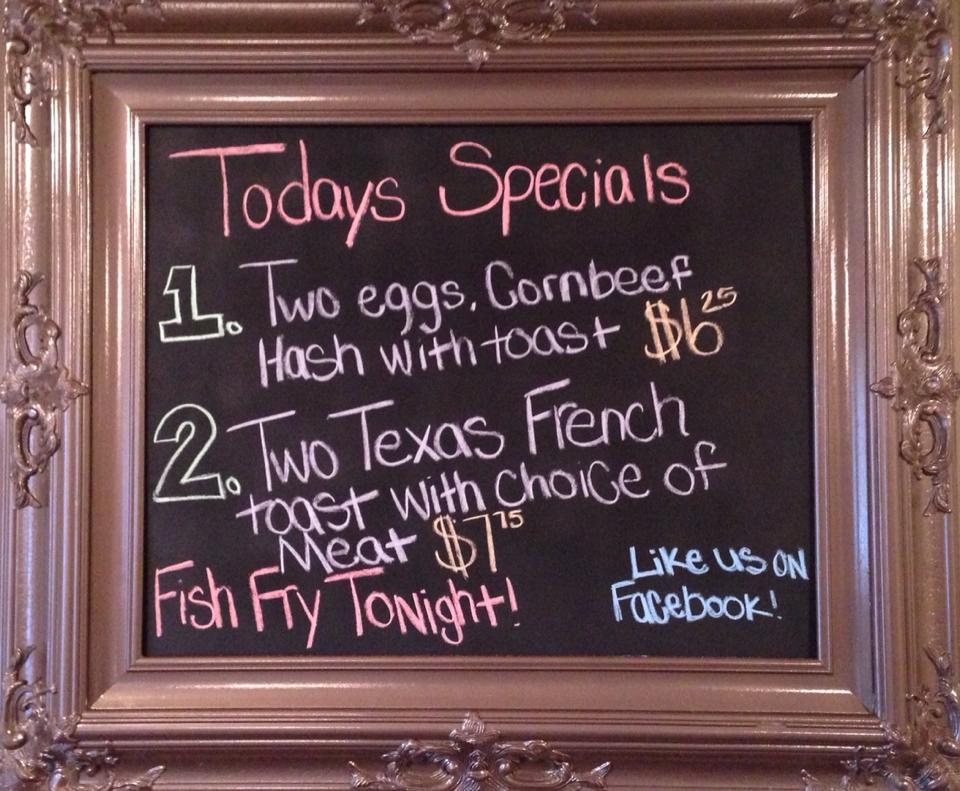 Todays Specials
1. Two eggs, Cornbeef
Hash with toast $6 25
2. Two Texas French
toast with choice of
Meat $7 75
Fish Fry Tonight!
Like us on
Facebook!